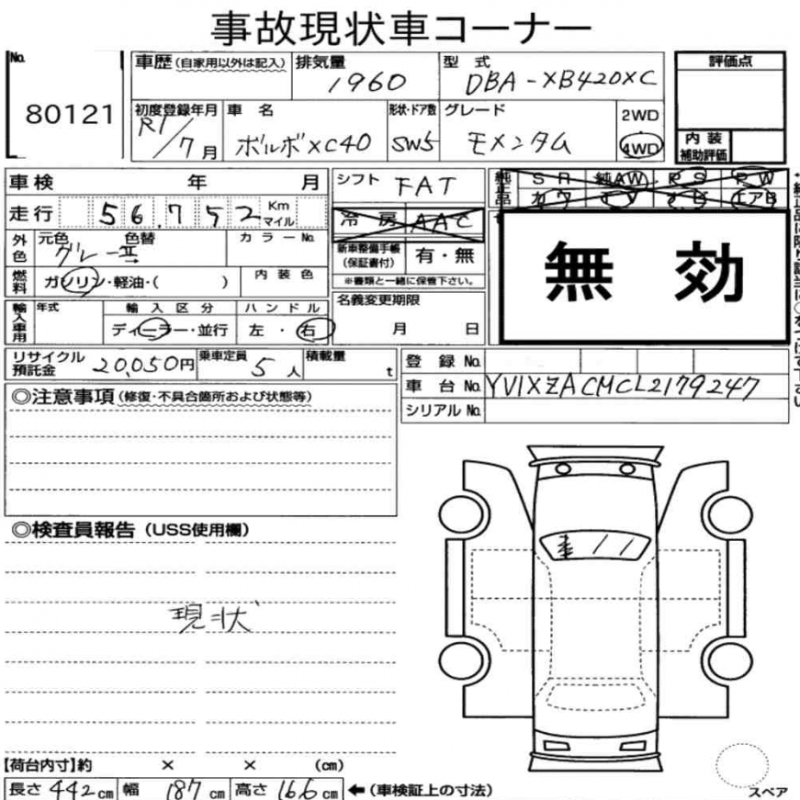 事故現状車コーナー
No. 80121
車歴(自家用以外は記入) 排気量 1960 型式 DBA-XB420XC 評価点
初度登録年月 R1/7月 車名 ボルボXC40 形状・ドア数 SW5 グレード モメンタム 2WD 4WD 内装補助評価
車検 年 月 シフト FAT 純正品 SR 純AW PS PW
走行 56,752 Km マイル 冷房 AAC カワ TV ナビ エアB
外色 元色 色替 グレーⅡ カラーNo. 新車整備手帳(保証書付) 有・無
燃料 ガソリン・軽油・( ) 内装色 ※書類と一緒に保管下さい。
無効
輸入車用 年式 輸入区分 ハンドル 名義変更期限
ディーラー・並行 左・右 月 日
リサイクル預託金 20,050円 乗車定員 5人 積載量 t 登録No.
車台No. YV1XZACMCL2179247
シリアルNo.
◎注意事項(修復・不具合箇所および状態等)
◎検査員報告(USS使用欄)
現状
【荷台内寸】約 × × (cm)
長さ 442cm 幅 187cm 高さ 166cm ←(車検証上の寸法)
スペア